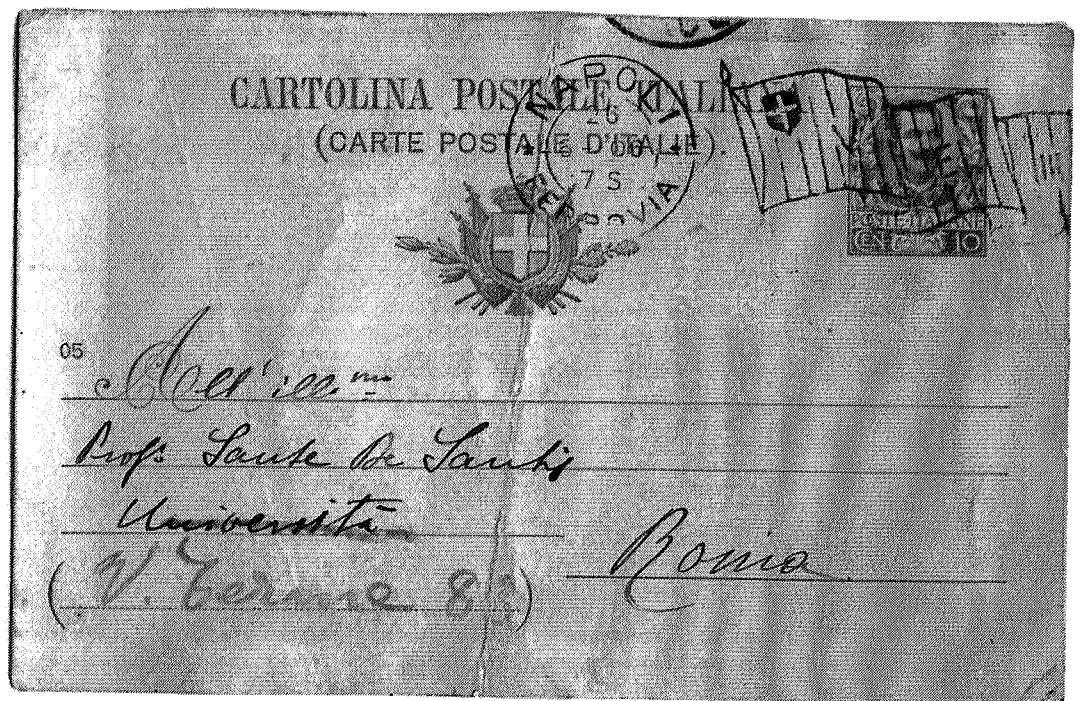 CARTOLINA POSTALE ITALIANA
(CARTE POSTALE D'ITALIE).
NAPOLI
26
5 - 06
7 S
FERROVIA
POSTE ITALIANE
CEN 10
05
All' ill.mo
Prof. Sante De Santis
Università
Roma
(V. Terme 83)